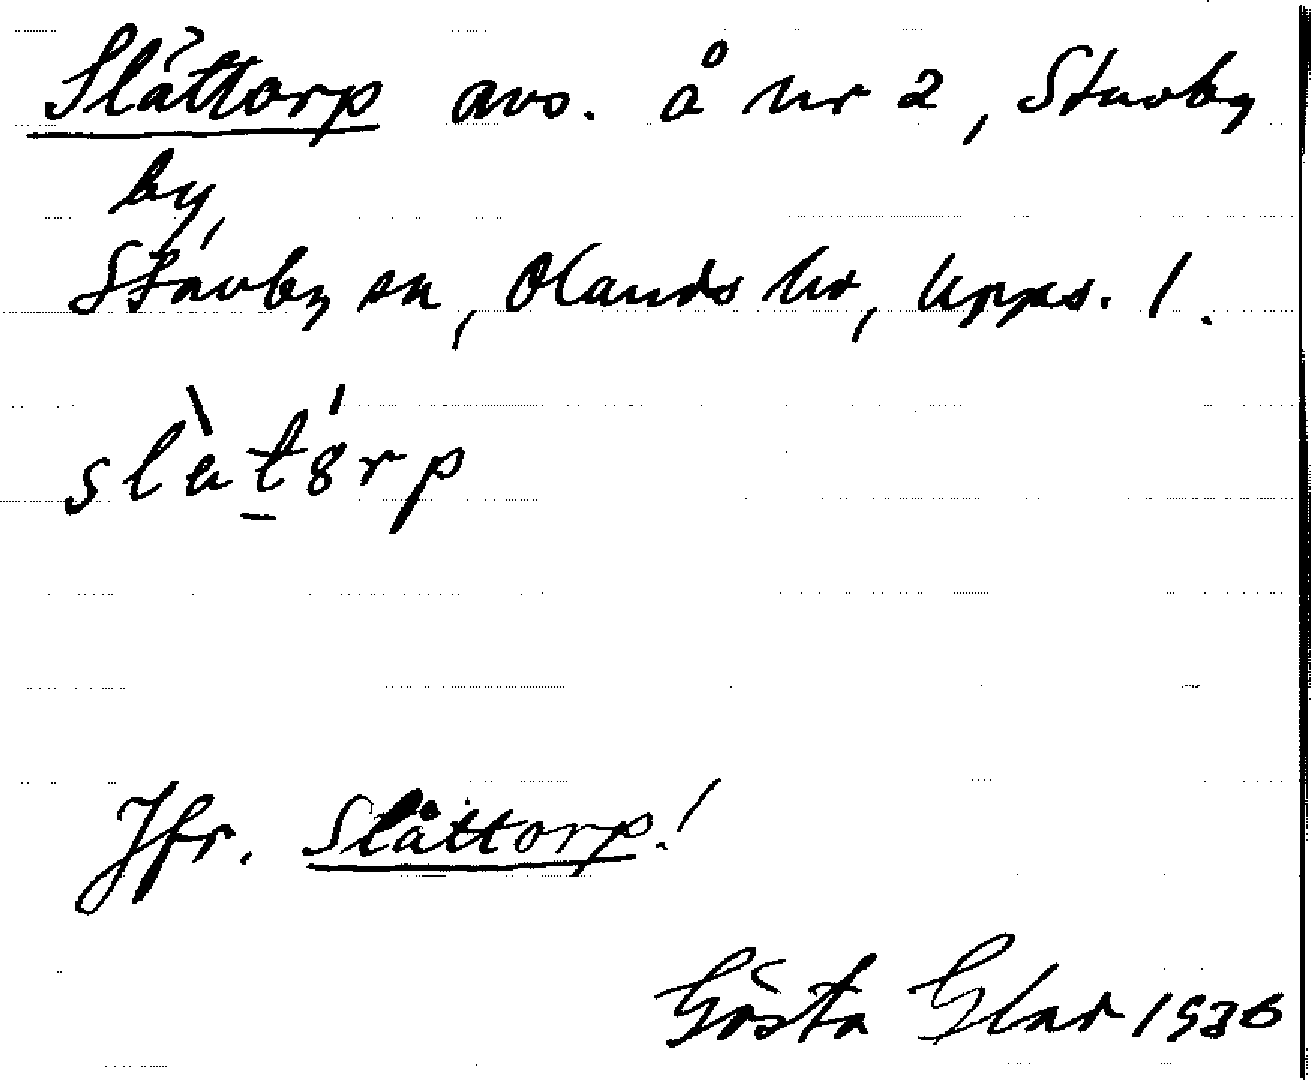 Slättorp avs. å nr 2, Stavby
by,
Stavby sn, Olands hd, Upps. l.
slàtórp
Jfr. Slåttorp!
Gösta Glad 1936